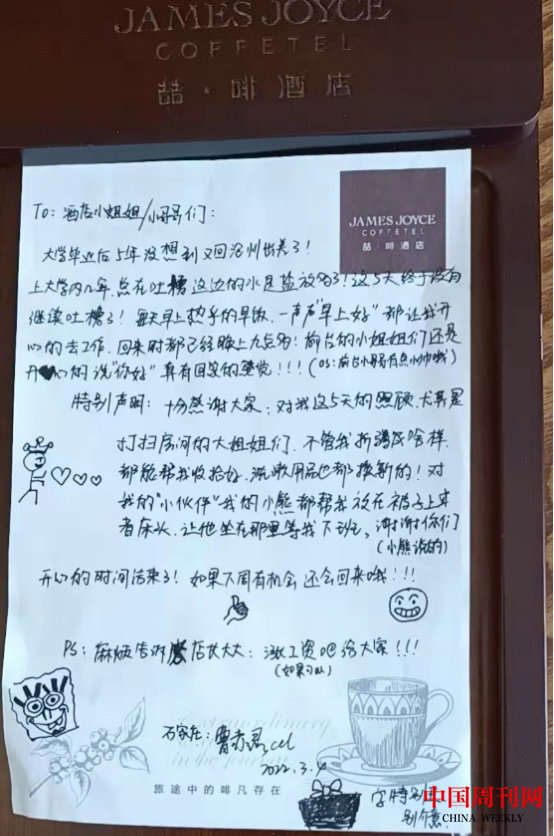 JAMES JOYCE
COFFETEL
喆·啡酒店
JAMES JOYCE
COFFETEL
喆·啡酒店
To: 酒店小姐姐/小哥哥们:
大学毕业后5年没想到又回沧州出差了!
上大学内几年,总在吐槽这边的水是盐放多了!这5天终于没有
继续吐槽了!每天早上热乎的早饭,一声声"早上好"都让我开
心的去工作,回来时都已经晚上九点多!前台的小姐姐们还是
开心的说"你好"真有回家的感觉!!!(os:前台小哥有点小帅哦)
特别声明:十分感谢大家,对我这5天的照顾,尤其是
打扫房间的大姐姐们,不管我折腾成啥样,
都能帮我收拾好,洗漱用品也都换新的!对
我的"小伙伴"我的小熊都帮我放在被子上或
者床头,让他坐在那里等我下班。谢谢你们
(小熊说的)
开心的时间结束了!如果下周有机会还会回来哦!!!
PS:麻烦告诉店长大大:涨工资吧给大家!!!
(如果可以)
Extraordinary
in the journey
石家庄:曹
2022.3.
旅途中的啡凡存在
字特别
别介意
中国周刊网
CHINA WEEKLY